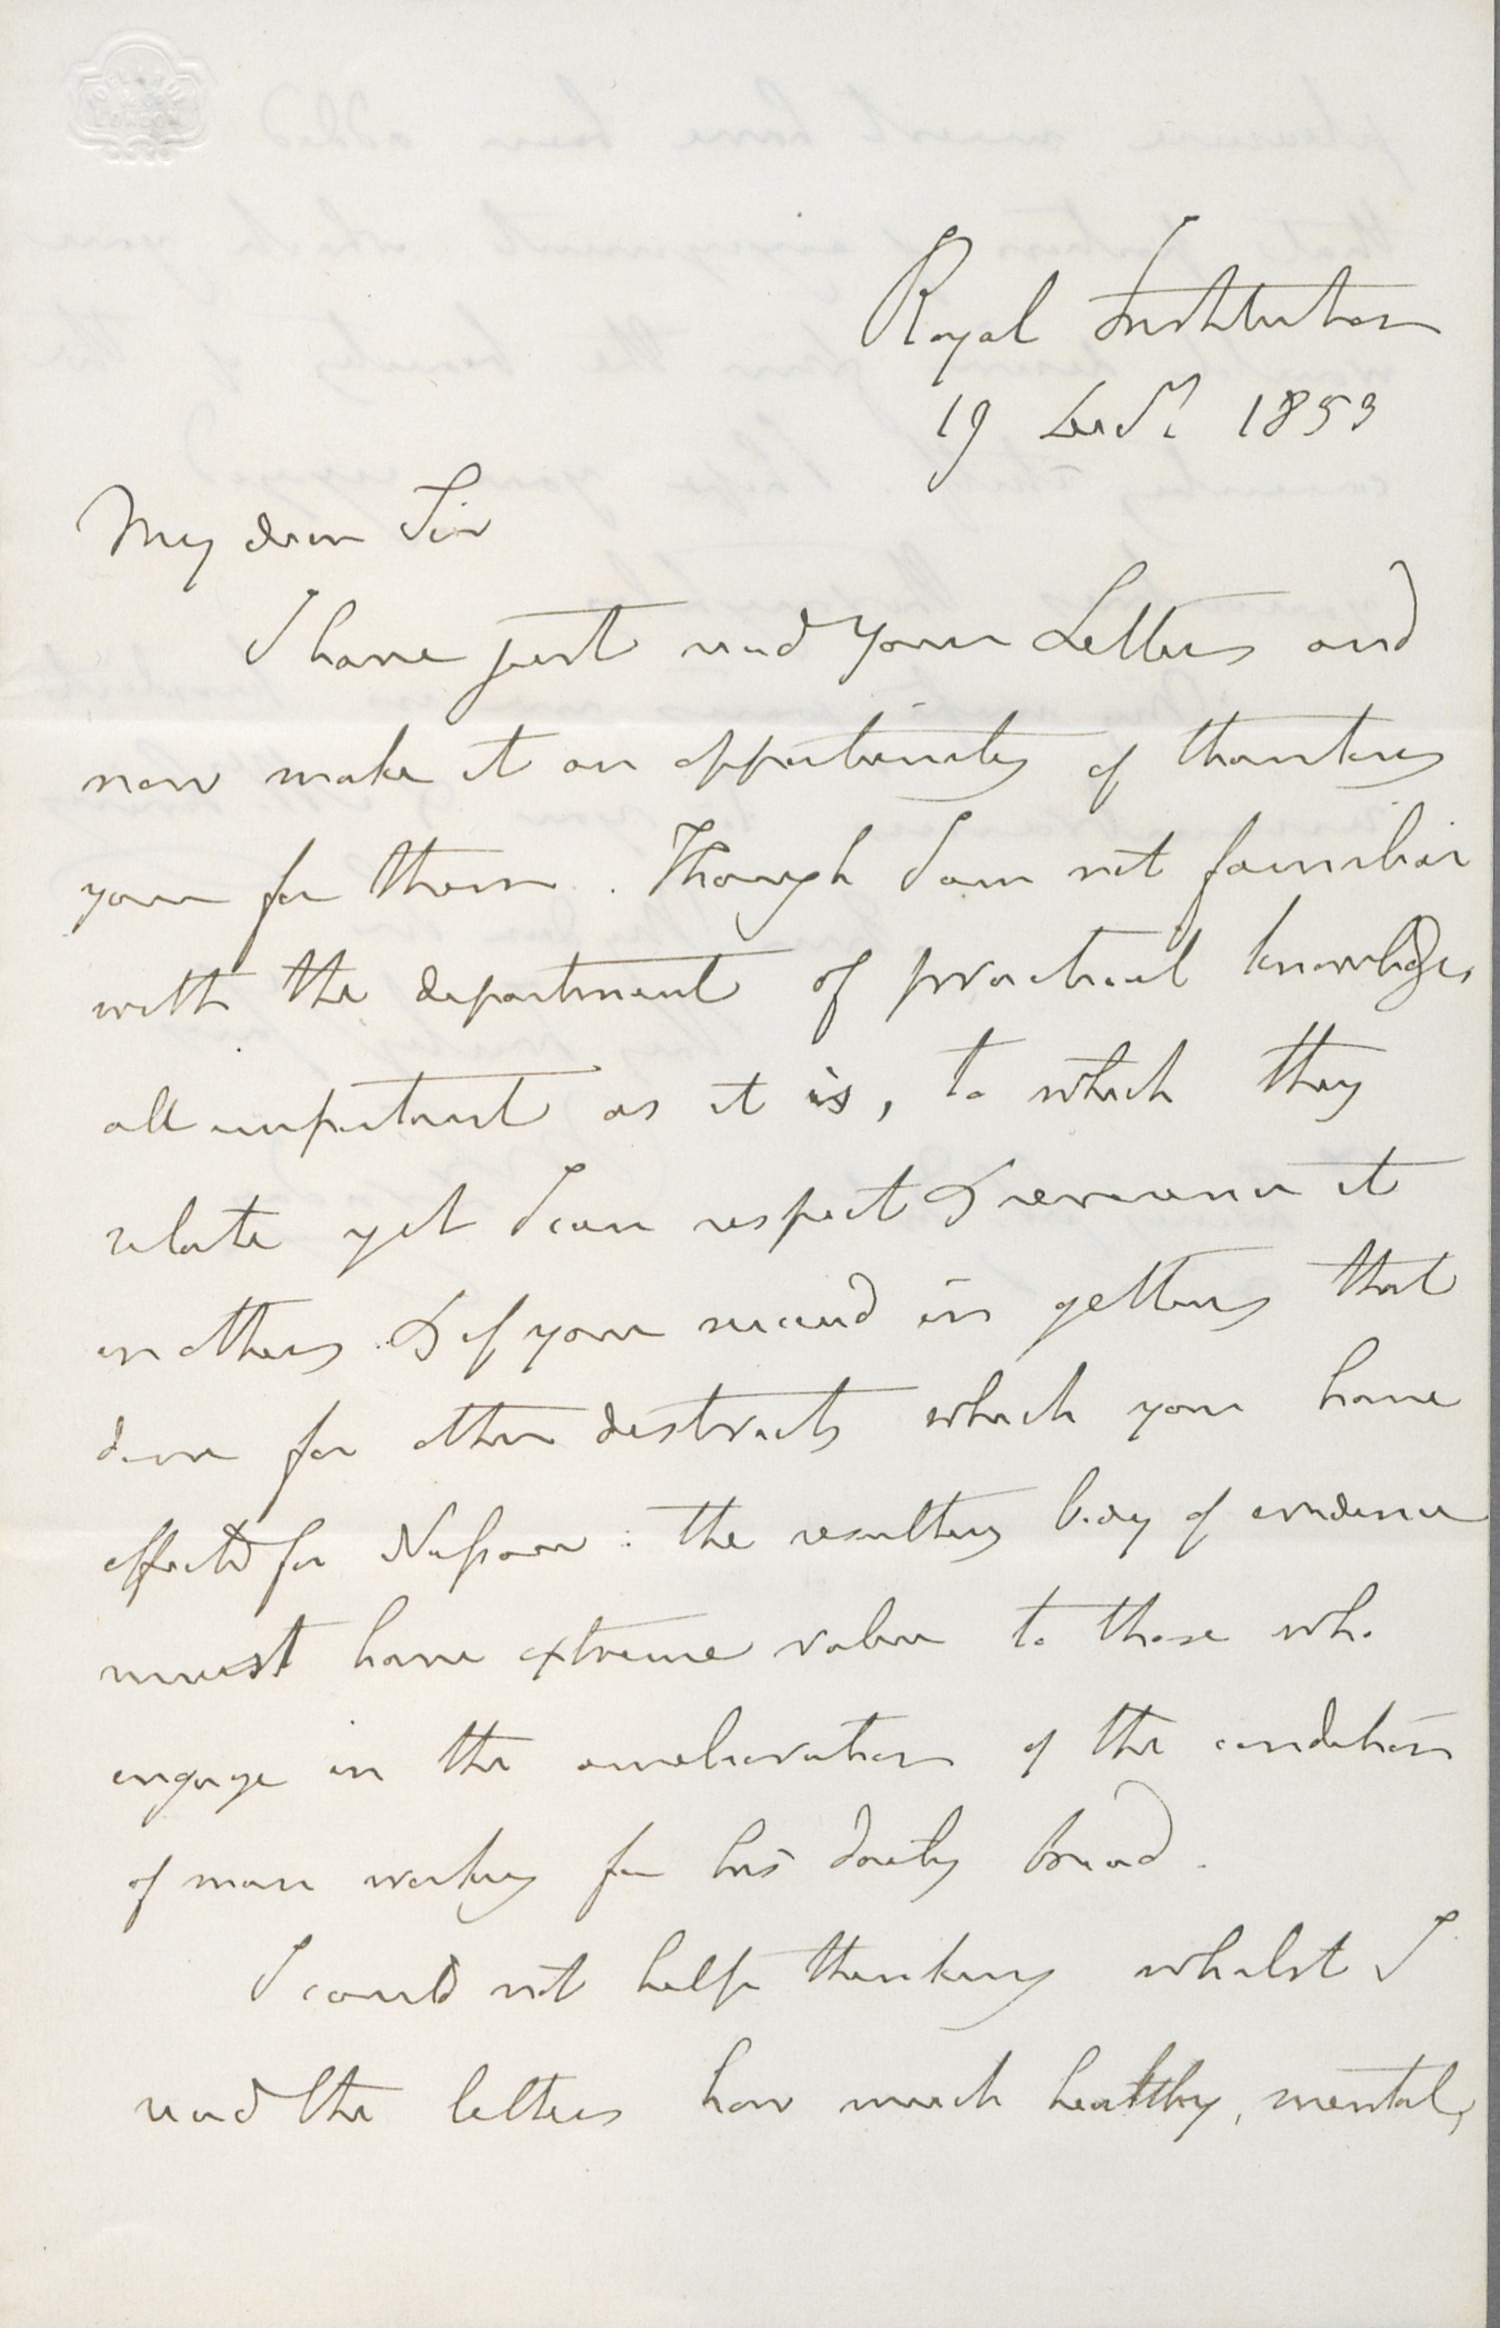 Royal Institution
19 1853
My dear Sir
I have just read your Letters and
now make it an opportunity of thanking
you for them. Though I am not familiar
with the department of practical knowledge,
all important as it is, to which they
relate yet I can respect & reverence it
in others & if you succeed in getting that
done for other districts which you have
effected for : the resulting body of evidence
must have extreme value to those who
engage in the amelioration of the condition
of man working for his daily bread.
I could not help thinking whilst I
read the letters how much healthy, mental,